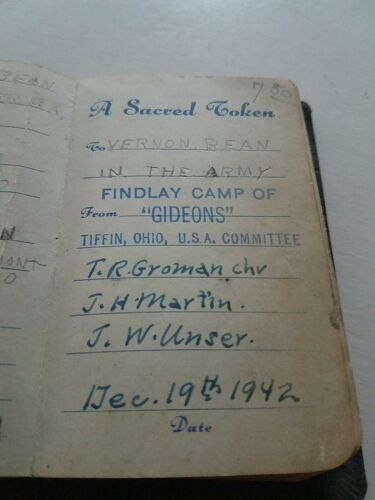 BEAN
7 50
A Sacred Token
To VERNON BEAN
IN THE ARMY
FINDLAY CAMP OF
From "GIDEONS"
TIFFIN, OHIO, U.S.A. COMMITTEE
T. R. Groman chr
J. H. Martin.
J. W. Unser.
Dec. 19th 1942
Date